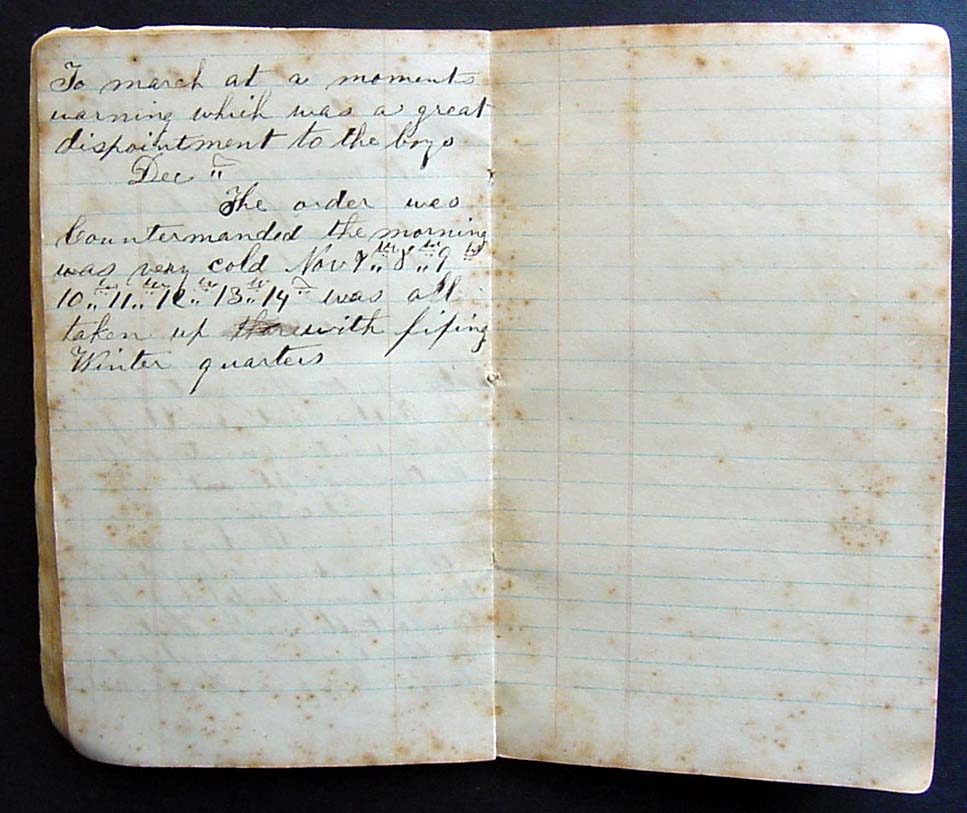 To march at a moments
warning which was a great
dispointment to the boys
Dec "
The order was
Countermanded the morning
was very cold Nov 7th 8th 9th
10th 11th 12th 13th 14 was all
taken up with fifing
Winter quarters